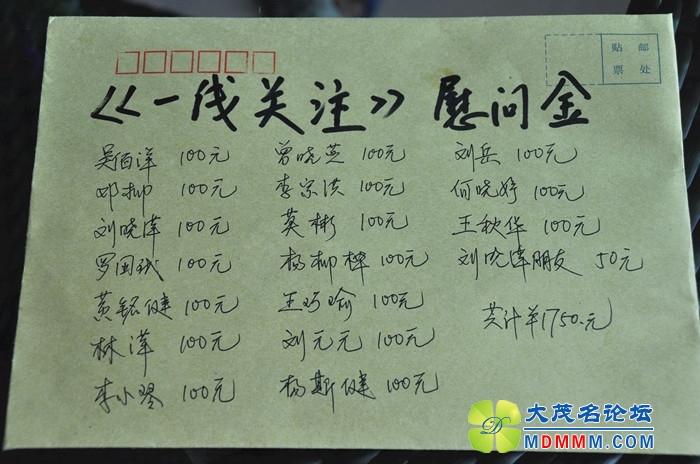 贴 邮
票 处
《一线关注》慰问金
吴百洋 100元 曾晓芝 100元 刘兵 100元
邓柳 100元 李宗洪 100元 何晓婷 100元
刘晓伟 100元 莫彬 100元 王秋华 100元
罗国斌 100元 杨柳桦 100元 刘晓伟朋友 50元
黄铭健 100元 王巧瑜 100元 共计¥1750.元
林萍 100元 刘元元 100元
李小琴 100元 杨斯健 100元
大茂名论坛
MDMMM.COM